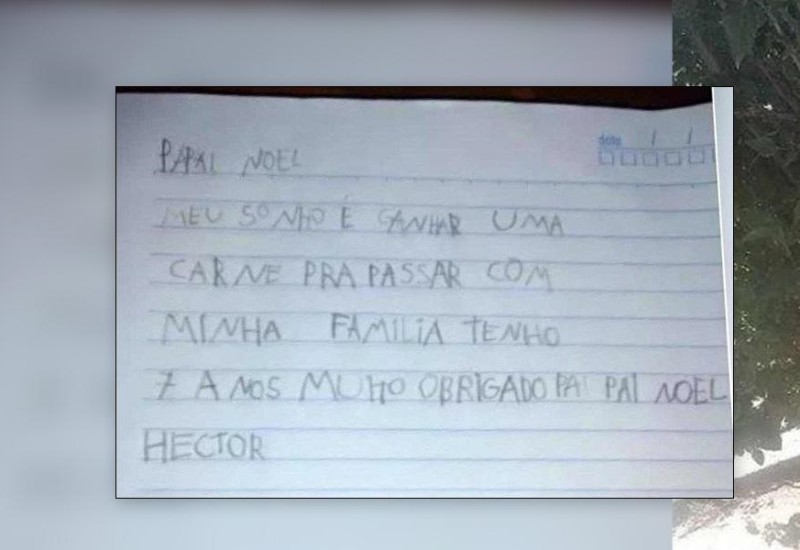 date / /
PAPAI NOEL
MEU SONHO É GANHAR UMA
CARNE PRA PASSAR COM
MINHA FAMILIA TENHO
7 ANOS MUITO OBRIGADO PA PAI NOEL
HECTOR